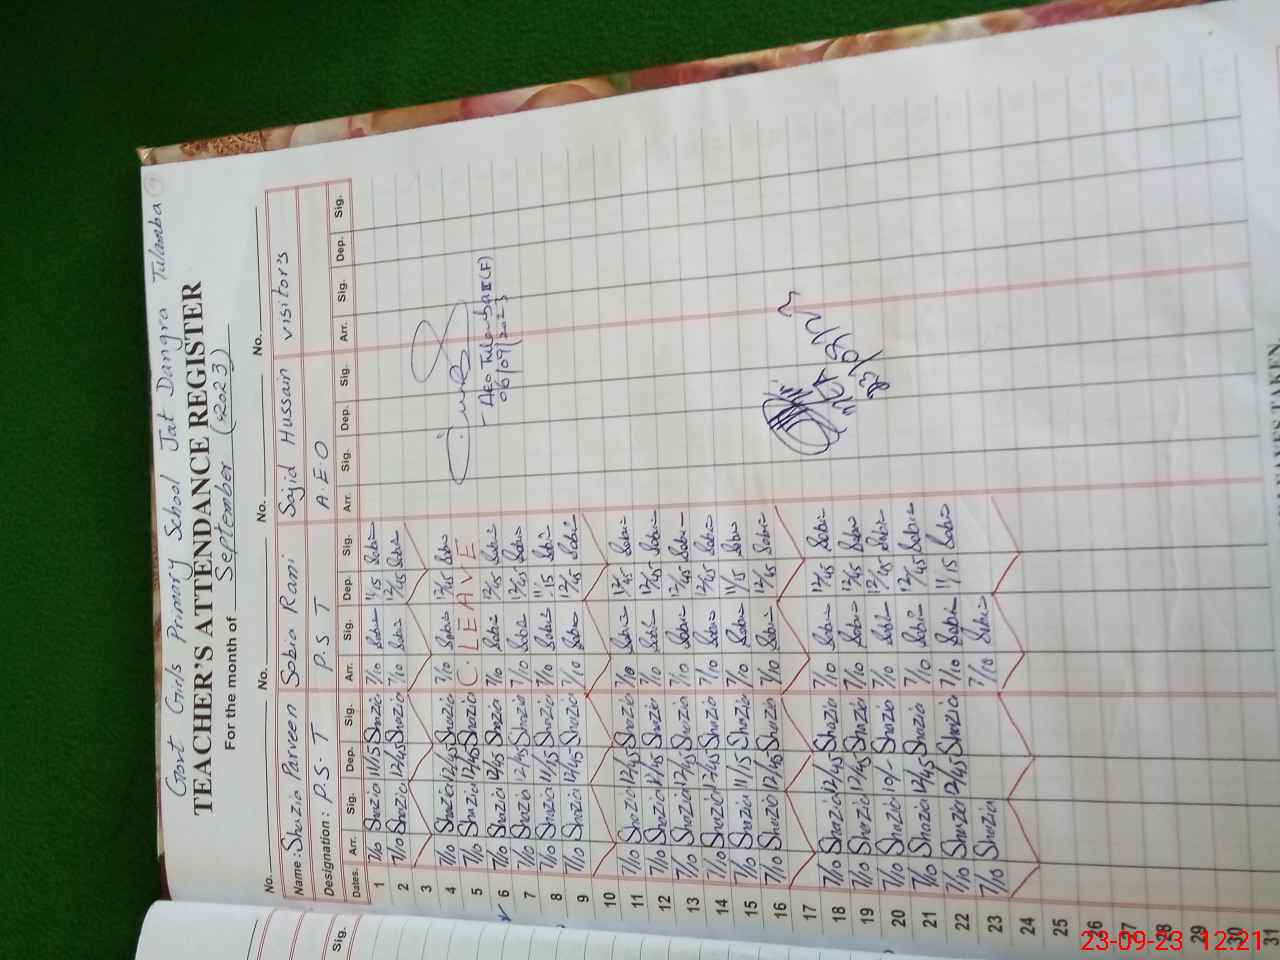 Govt Girls Primary School Jat Dangra Tulamba
TEACHER'S ATTENDANCE REGISTER
For the month of September (2023)
No. No. No. No.
Name: Shazia Parveen Sobia Rani Sajid Hussain visitor's
Designation: P.S.T P.S.T A E O
Dates. Arr. Sig. Dep. Sig. Arr. Sig. Dep. Sig. Arr. Sig. Dep. Sig. Arr. Sig. Dep. Sig.
1 7/10 Shazia 11/15 Shazia 7/10 Sobia 11/15 Sobia
2 7/10 Shazia 12/45 Shazia 7/10 Sobia 12/45 Sobia
3
4 7/10 Shazia 12/45 Shazia 7/10 Sobia 12/45 Sobia
5 7/10 Shazia 12/45 Shazia C. LEAVE
6 7/10 Shazia 12/45 Shazia 7/10 Sobia 12/45 Sobia AEO Tulamba II (F)
06/09/2023
7 7/10 Shazia 12/45 Shazia 7/10 Sobia 12/45 Sobia
8 7/10 Shazia 11/15 Shazia 7/10 Sobia 11/15 Sobia
9 7/10 Shazia 12/45 Shazia 7/10 Sobia 12/45 Sobia
10
11 7/10 Shazia 12/45 Shazia 7/10 Sobia 12/45 Sobia
12 7/10 Shazia 12/45 Shazia 7/10 Sobia 12/45 Sobia
13 7/10 Shazia 12/45 Shazia 7/10 Sobia 12/45 Sobia
14 7/10 Shazia 12/45 Shazia 7/10 Sobia 12/45 Sobia
15 7/10 Shazia 11/15 Shazia 7/10 Sobia 11/15 Sobia
16 7/10 Shazia 12/45 Shazia 7/10 Sobia 12/45 Sobia
17
18 7/10 Shazia 12/45 Shazia 7/10 Sobia 12/45 Sobia
19 7/10 Shazia 12/45 Shazia 7/10 Sobia 12/45 Sobia
20 7/10 Shazia 10/- Shazia 7/10 Sobia 12/45 Sobia
21 7/10 Shazia 12/45 Shazia 7/10 Sobia 12/45 Sobia
22 7/10 Shazia 12/45 Shazia 7/10 Sobia 11/15 Sobia
23 7/10 Shazia 7/10 Sobia
24
25
26
27
28
29
30
31
Sig.
23-09-23 12:21